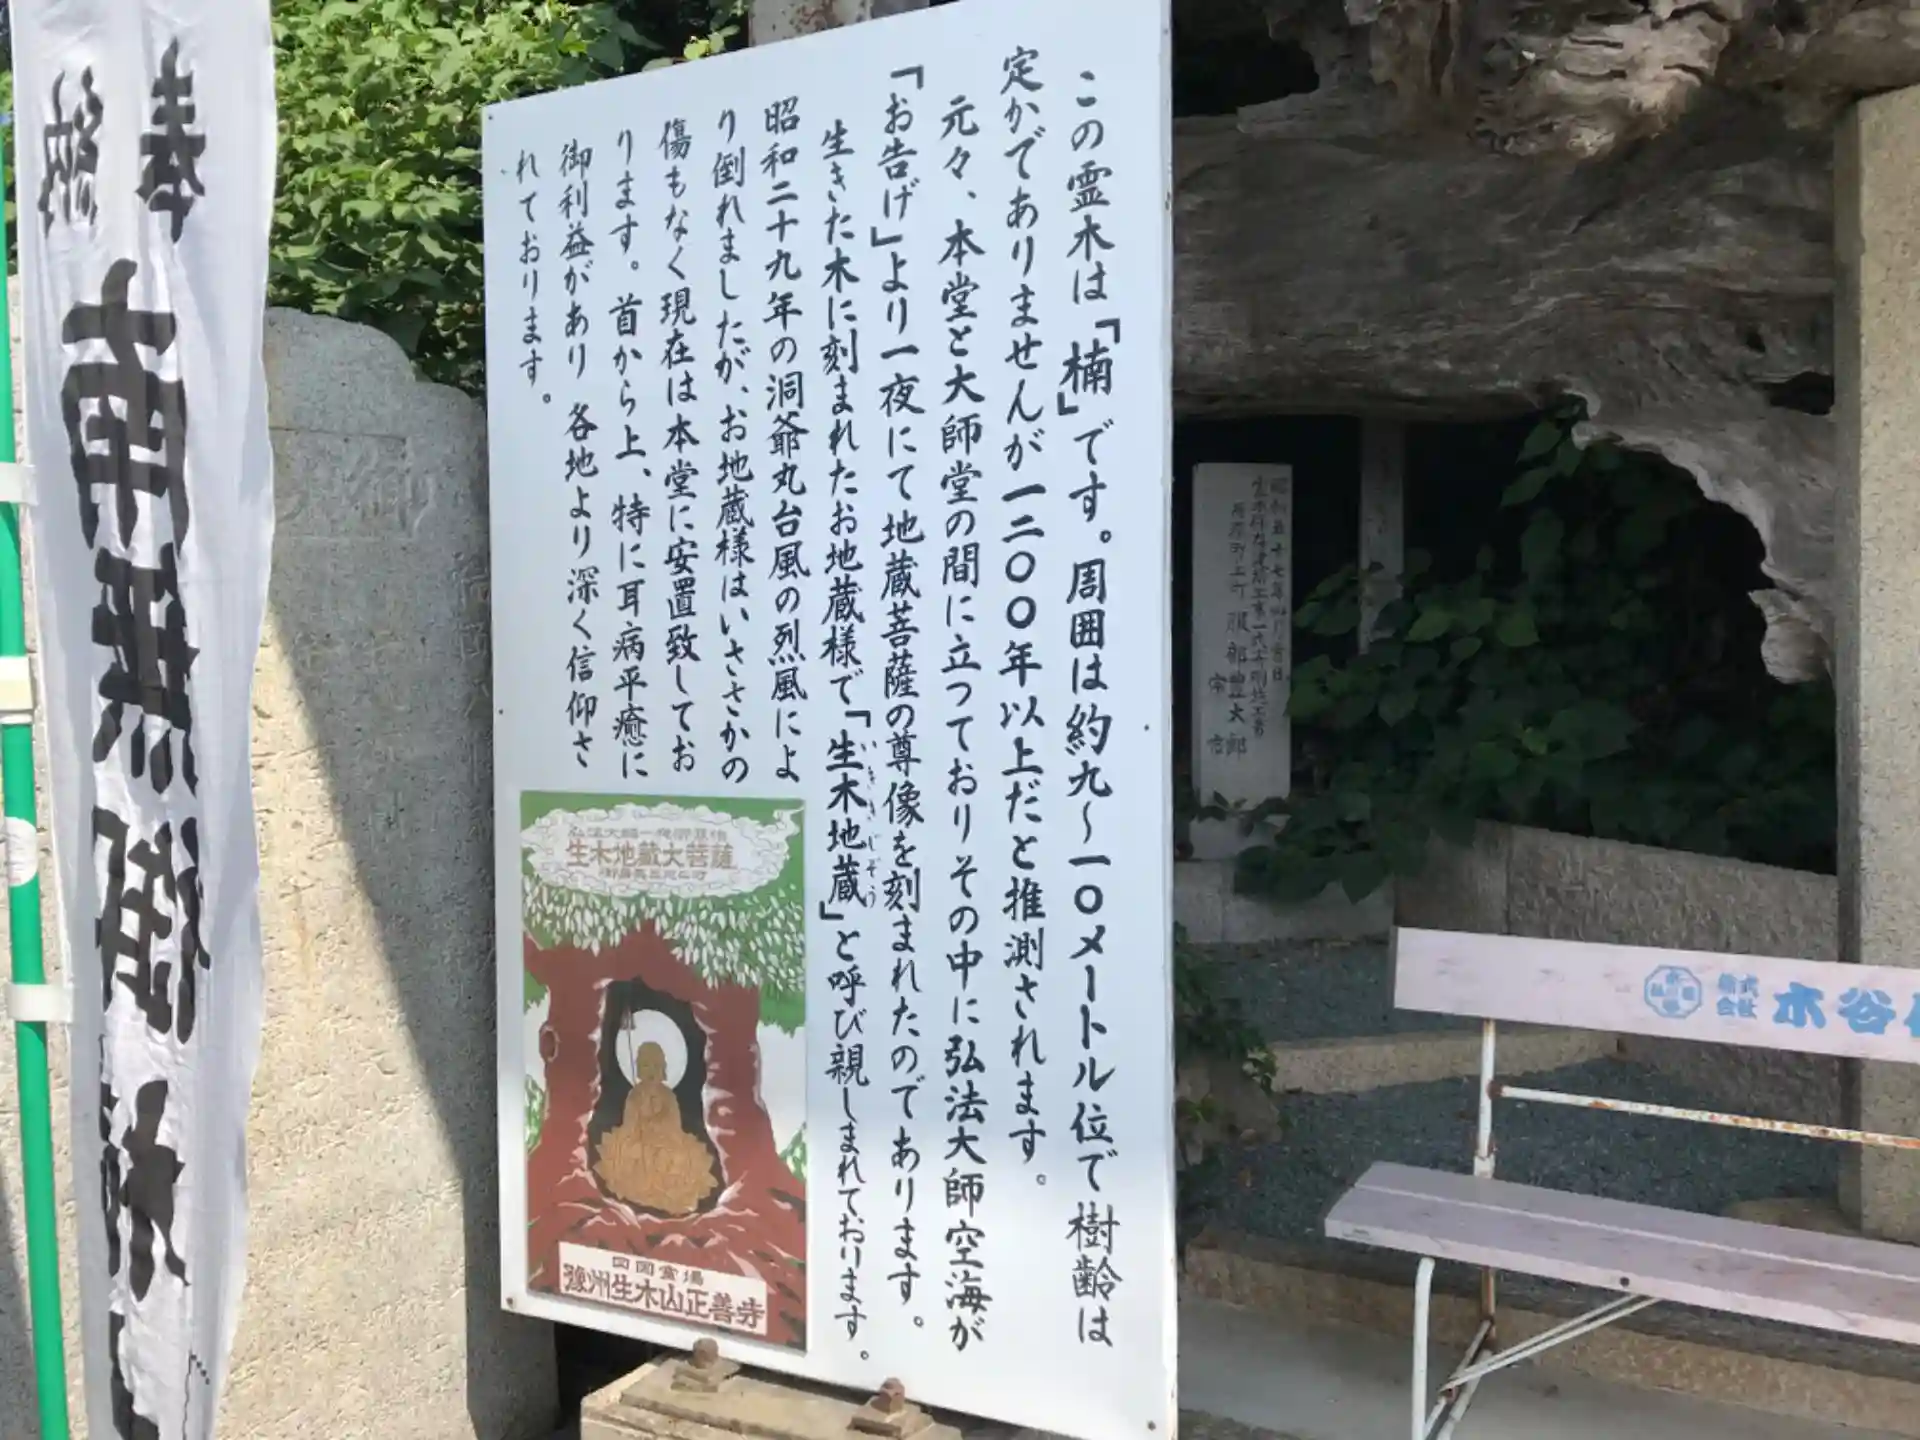 この霊木は「楠」です。周囲は約九〜一〇メートル位で樹齢は
定かでありませんが一二〇〇年以上だと推測されます。
元々、本堂と大師堂の間に立つておりその中に弘法大師空海が
「お告げ」より一夜にて地蔵菩薩の尊像を刻まれたのであります。
生きた木に刻まれたお地蔵様で「生木地蔵」と呼び親しまれております。
いききじぞう
昭和二十九年の洞爺丸台風の烈風によ
り倒れましたが、お地蔵様はいささかの
傷もなく現在は本堂に安置致してお
ります。首から上、特に耳病平癒に
御利益があり各地より深く信仰さ
れております。
生木地蔵大菩薩
四国霊場
豫州生木山正善寺
奉納
南無御
服部豊大郎
株式会社
水谷